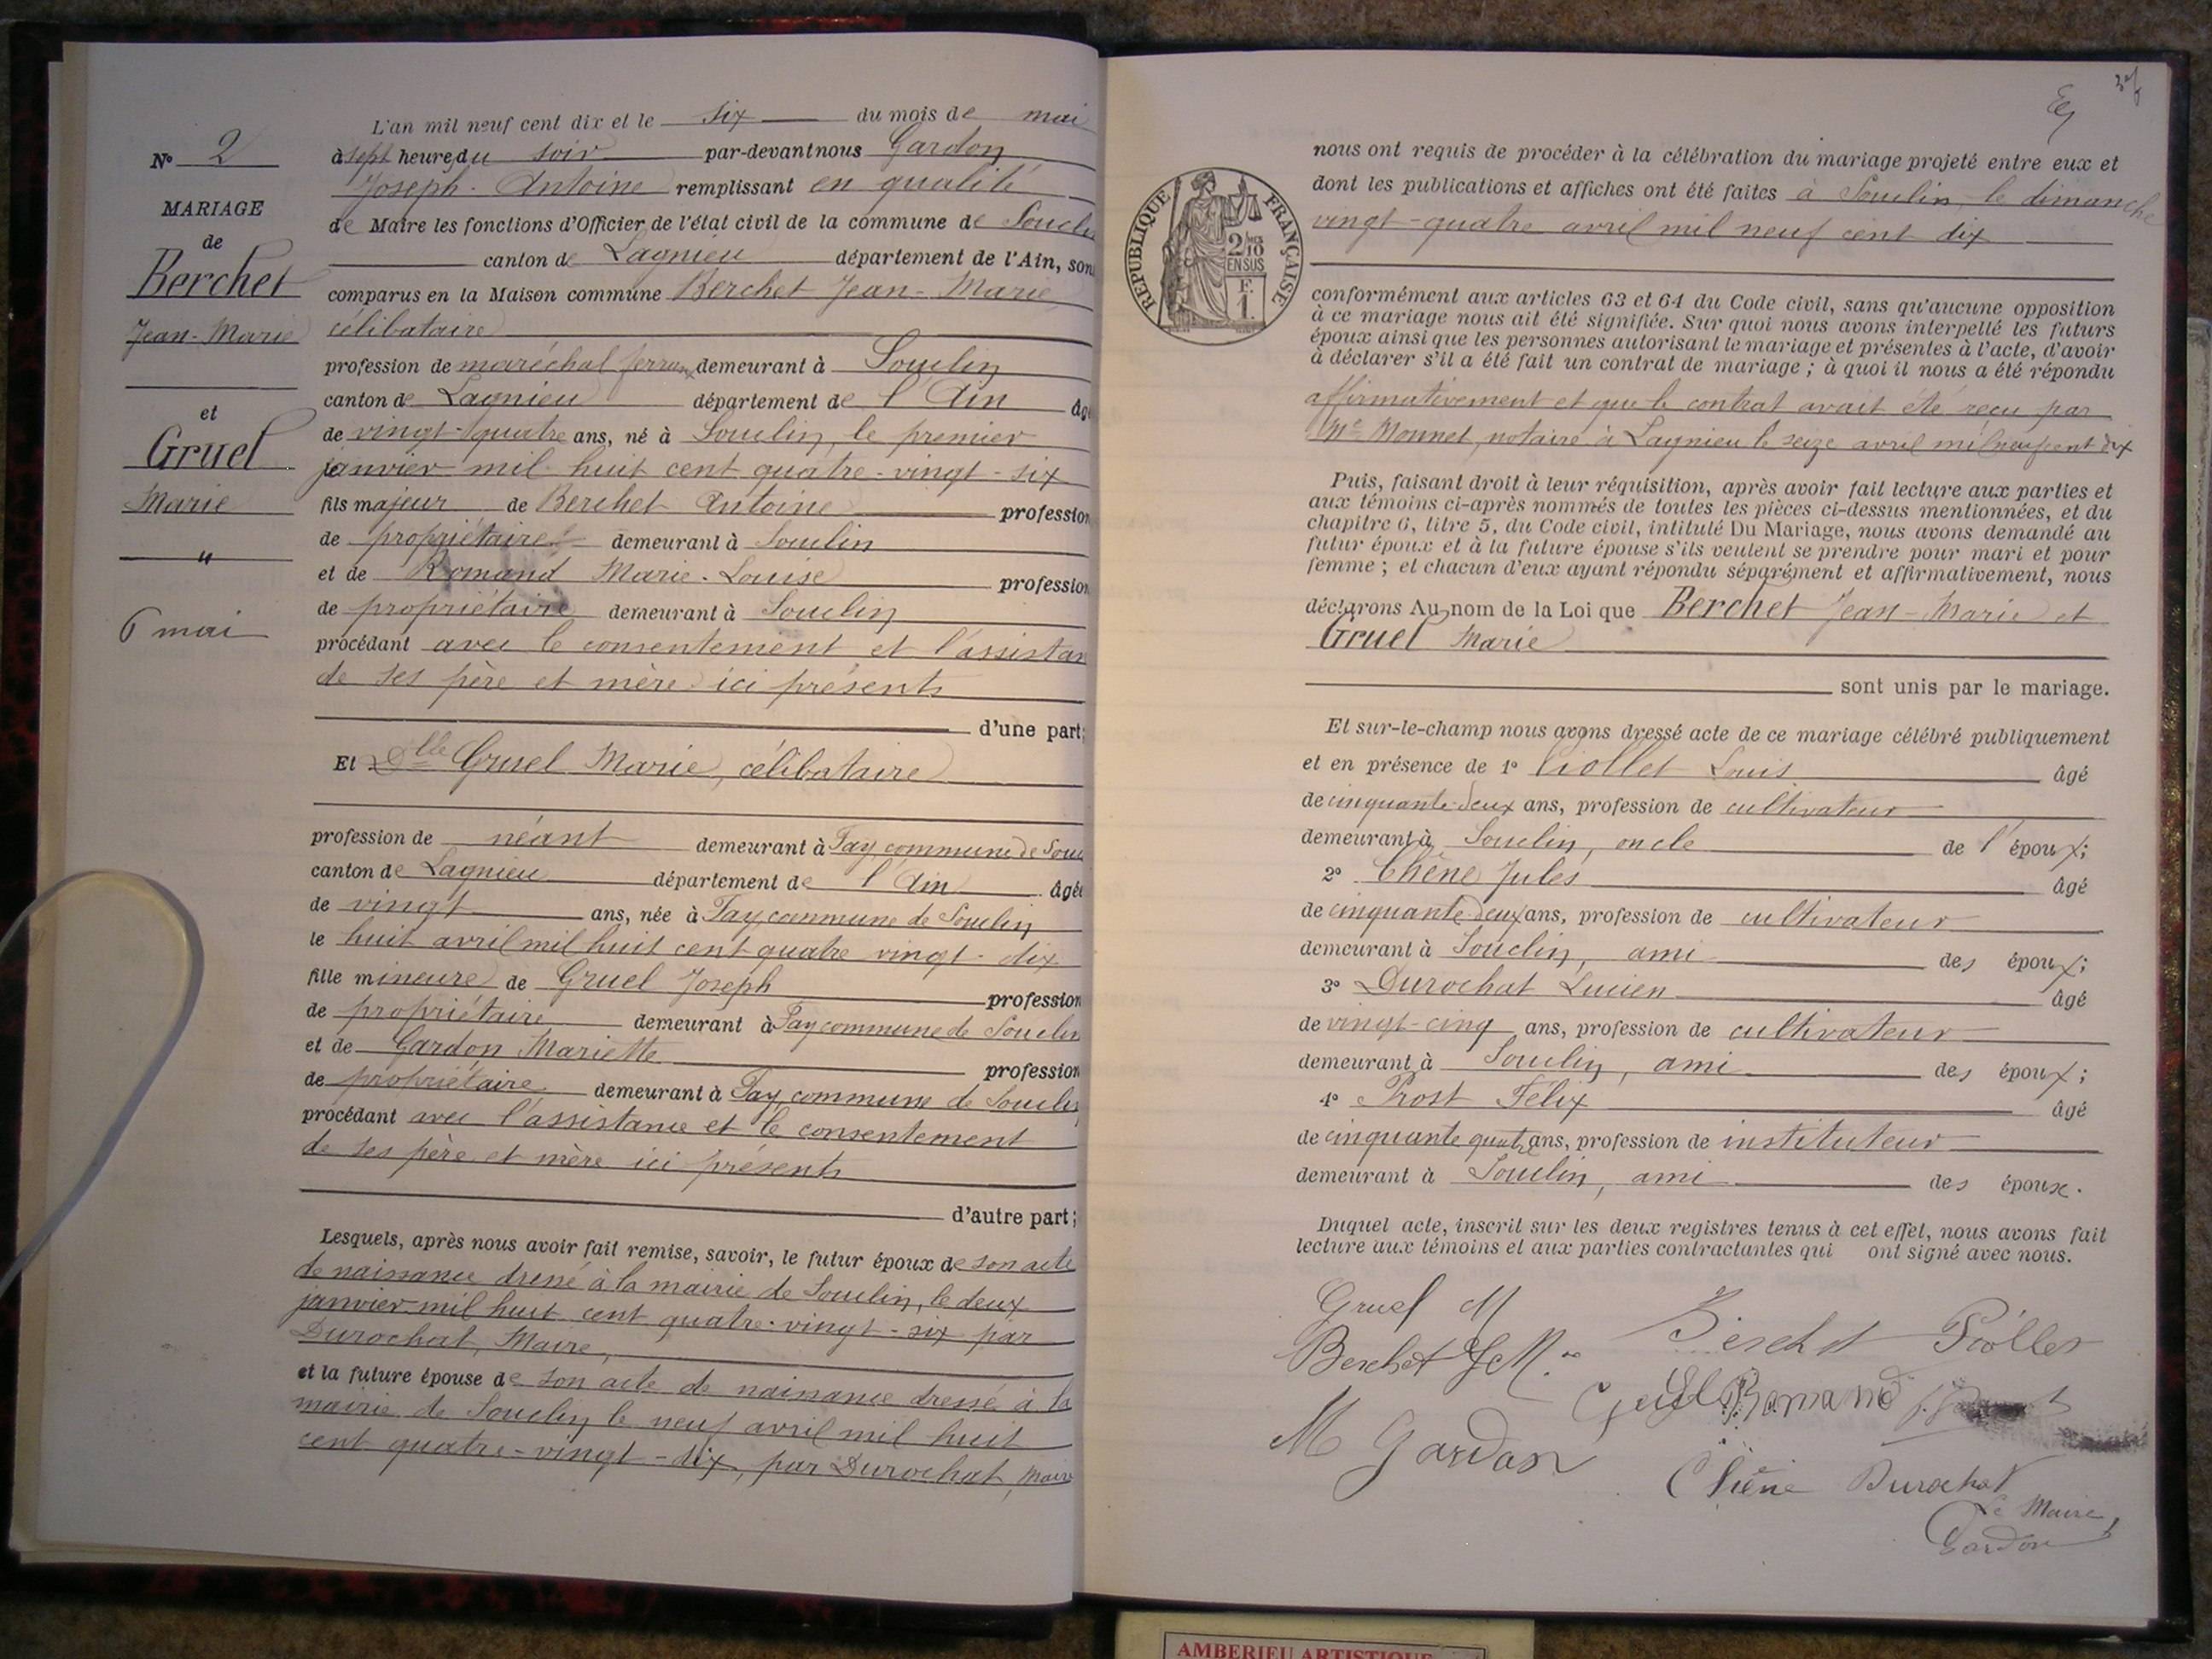 N° 2
MARIAGE
de
Berchet
Jean-Marie
et
Gruel
Marie
"
6 mai
L'an mil neuf cent dix et le six du mois de mai
à sept heures du soir par-devant nous Gardon
Joseph-Antoine remplissant en qualité
de Maire les fonctions d'Officier de l'état civil de la commune de Souclin
canton de Lagnieu département de l'Ain, sont
comparus en la Maison commune Berchet Jean-Marie
célibataire
profession de maréchal ferrant demeurant à Souclin
canton de Lagnieu département de l'Ain âgé
de vingt-quatre ans, né à Souclin, le premier
janvier mil huit cent quatre-vingt-six
fils majeur de Berchet Antoine profession
de propriétaire demeurant à Souclin
et de Romand Marie-Louise profession
de propriétaire demeurant à Souclin
procédant avec le consentement et l'assistan
de ses père et mère ici présents
d'une part;
Et Dlle Gruel Marie, célibataire
profession de néant demeurant à Fay, commune de Souc
canton de Lagnieu département de l'Ain âgée
de vingt ans, née à Fay, commune de Souclin
le huit avril mil huit cent quatre vingt-dix
fille mineure de Gruel Joseph profession
de propriétaire demeurant à Fay commune de Souclin
et de Gardon Mariette profession
de propriétaire demeurant à Fay, commune de Souclin
procédant avec l'assistance et le consentement
de ses père et mère ici présents
d'autre part;
Lesquels, après nous avoir fait remise, savoir, le futur époux de son acte
de naissance dressé à la mairie de Souclin, le deux
janvier mil huit cent quatre-vingt-six par
Durochat, Maire,
et la future épouse de son acte de naissance dressé à la
mairie de Souclin le neuf avril mil huit
cent quatre-vingt-dix, par Durochat, Maire
nous ont requis de procéder à la célébration du mariage projeté entre eux et
dont les publications et affiches ont été faites à Souclin, le dimanche
vingt-quatre avril mil neuf cent dix
RÉPUBLIQUE FRANÇAISE
2/10
EN SUS
F.
1.
conformément aux articles 63 et 64 du Code civil, sans qu'aucune opposition
à ce mariage nous ait été signifiée. Sur quoi nous avons interpellé les futurs
époux ainsi que les personnes autorisant le mariage et présentes à l'acte, d'avoir
à déclarer s'il a été fait un contrat de mariage; à quoi il nous a été répondu
affirmativement et que le contrat avait été reçu par
Me Monnet, notaire à Lagnieu le seize avril mil neuf cent dix
Puis, faisant droit à leur réquisition, après avoir fait lecture aux parties et
aux témoins ci-après nommés de toutes les pièces ci-dessus mentionnées, et du
chapitre 6, titre 5, du Code civil, intitulé Du Mariage, nous avons demandé au
futur époux et à la future épouse s'ils veulent se prendre pour mari et pour
femme; et chacun d'eux ayant répondu séparément et affirmativement, nous
déclarons Au nom de la Loi que Berchet Jean-Marie et
Gruel Marie
sont unis par le mariage.
Et sur-le-champ nous avons dressé acte de ce mariage célébré publiquement
et en présence de 1° Piollet Louis âgé
de cinquante-deux ans, profession de cultivateur
demeurant à Souclin, oncle de l'époux;
2° Chêne Jules âgé
de cinquante-deux ans, profession de cultivateur
demeurant à Souclin, ami des époux;
3° Durochat Lucien âgé
de vingt-cinq ans, profession de cultivateur
demeurant à Souclin, ami des époux;
4° Prost Félix âgé
de cinquante quatre ans, profession de instituteur
demeurant à Souclin, ami des époux.
Duquel acte, inscrit sur les deux registres tenus à cet effet, nous avons fait
lecture aux témoins et aux parties contractantes qui ont signé avec nous.
Gruel M
Berchet Piollet
Berchet J M.
Gruel Romand
M Gardon
Chêne Durochat
Le Maire,
Gardon
AMBERIEU ARTISTIQUE